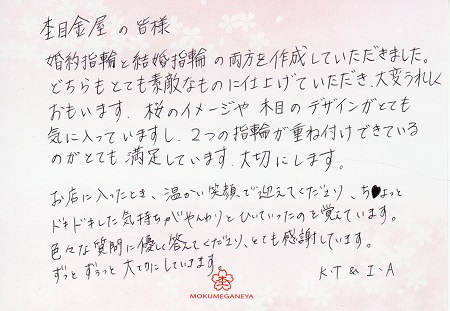 杢目金屋 の 皆様
婚約指輪と結婚指輪の両方を作成していただきました。
どちらもとても素敵なものに仕上げていただき、大変うれしく
おもいます. 桜のイメージや 木目の デザインがとても
気に入っていますし、2つの指輪が重ね付けできている
のがとても 満足しています. 大切にします。
お店に入ったとき、温かい笑顔で迎えてくださり、ちょっと
ドキドキした気持ちがやんわりとひいていったのを覚えています。
色々な質問に優しく答えてくださり、とても感謝しています。
ずっと ずぅっと 大切にしていきます.
K・T & I・A
MOKUMEGANEYA